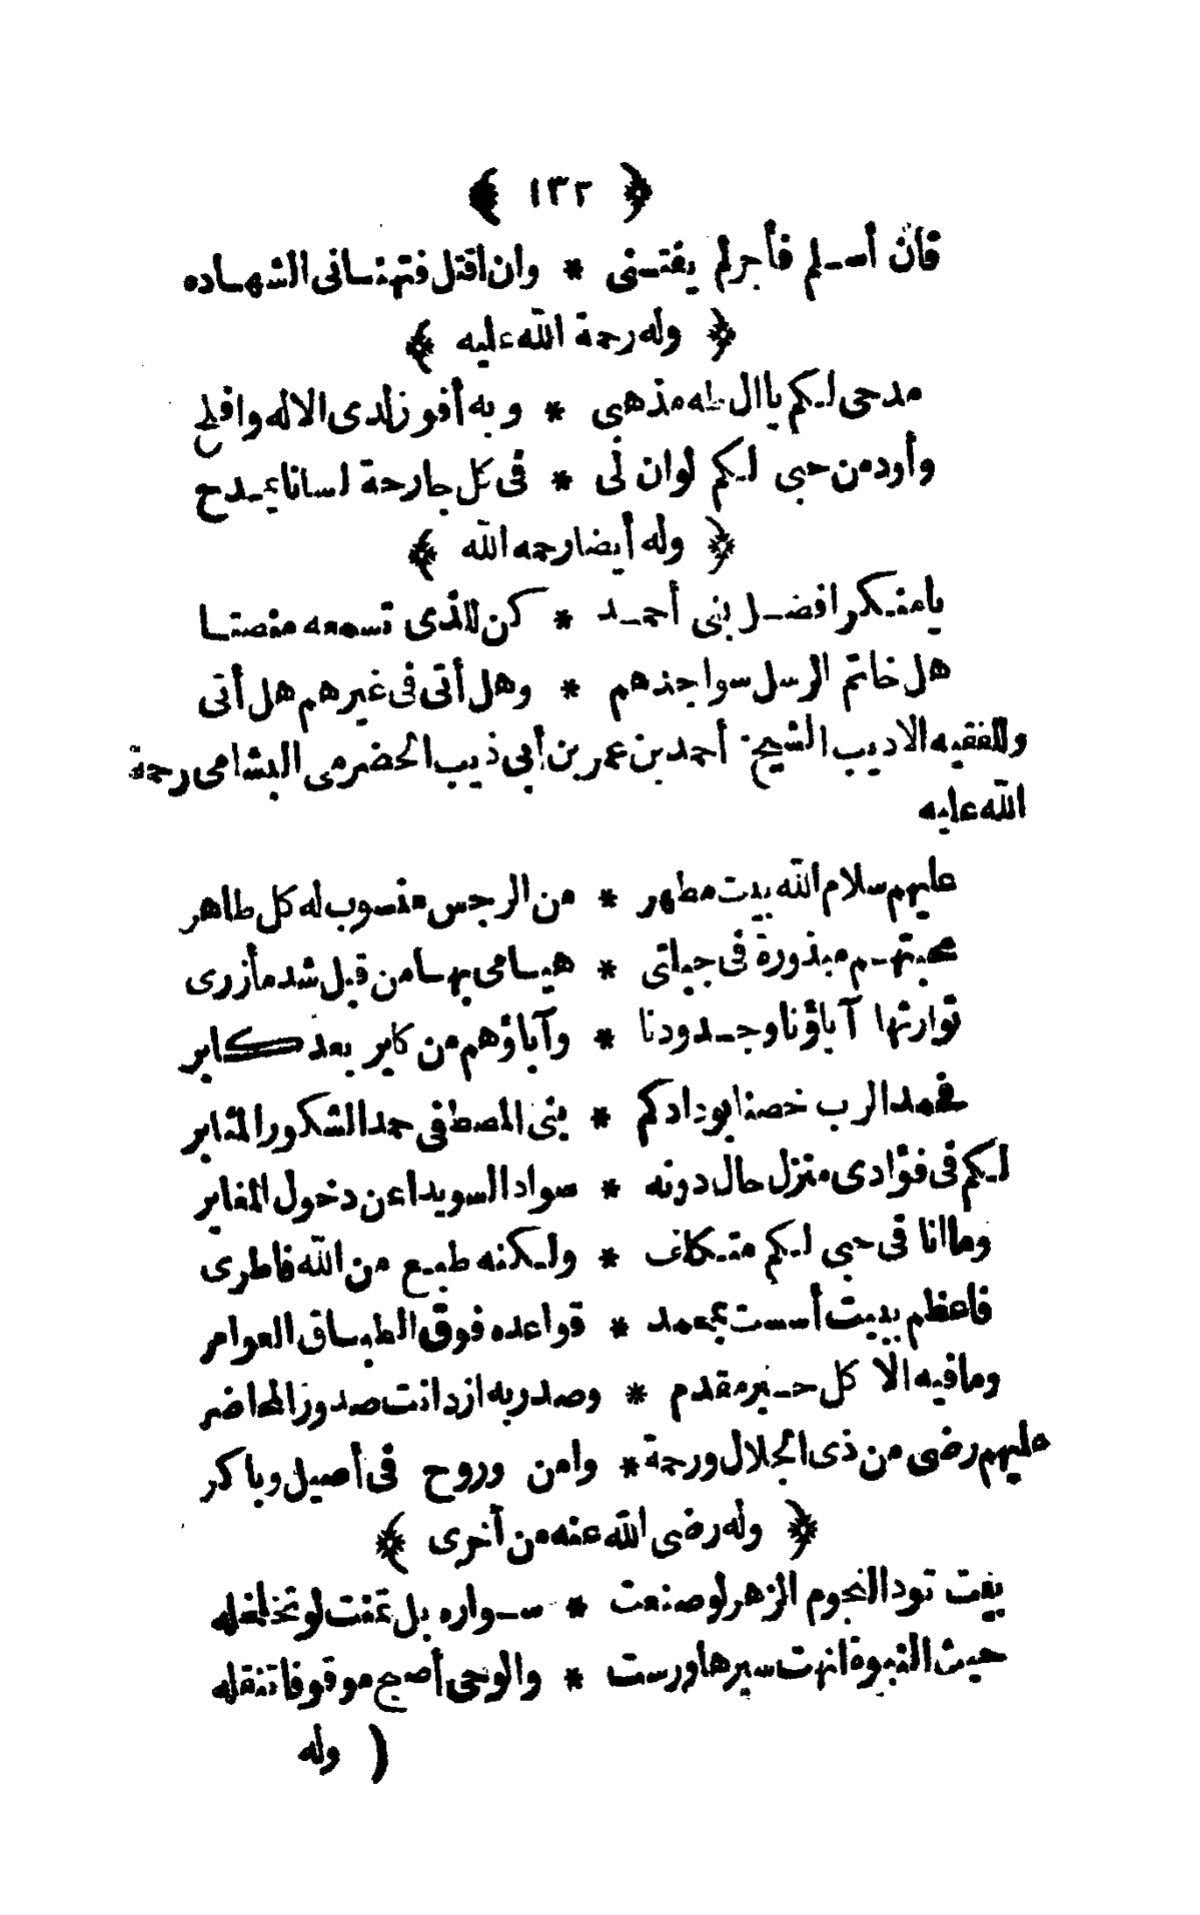 ﴿ ١٣٢ ﴾
فان أسلم فأجر لم يفتنى * وان اقتل فتهنانى الشهاده
﴿ وله رحمة الله عليه ﴾
مدحى لكم يا ال طه مذهبى * وبه أفوز لدى الاله وافلح
وأود من حبى لكم لو ان لى * فى كل جارحة لسانا يمدح
﴿ وله أيضا رحمه الله ﴾
يا منكرا فضل بنى أحمد * كن للذى تسمعه منصتا
هل خاتم الرسل سوا جدهم * وهل أتى فى غيرهم هل أتى
وللفقيه الاديب الشيخ أحمد بن عمر بن أبى ذيب الحضرمى الشامى رحمة
الله عليه
عليهم سلام الله بيت مطهر * من الرجس منسوب له كل طاهر
محبتهم مبذورة فى جباتى * هيامى بها من قبل شد مأزرى
توارثها آباؤنا وجدودنا * وآباؤهم من كابر بعد كابر
فحمد الرب خصنا بودادكم * بنى المصطفى حمد الشكور المثابر
لكم فى فؤادى منزل حال دونه * سواد السويدا عن دخول المغابر
وما انا فى حبى لكم متكلف * ولكنه طبع من الله فاطرى
فاعظم ببيت أسست بمحمد * قواعده فوق الطباق العوامر
وما فيه الا كل حبر مقدم * وصدر به ازدانت صدور المحاضر
عليهم رضى من ذى الجلال ورحمة * وامن وروح فى أصيل وباكر
﴿ وله رضى الله عنه من أخرى ﴾
بيت تود النجوم الزهر لو صنعت * سواره بل تمنت لو تخلخله
حيث النبوة انهت سيرها ورست * والوحى أصبح موقوفا تنقله
( وله